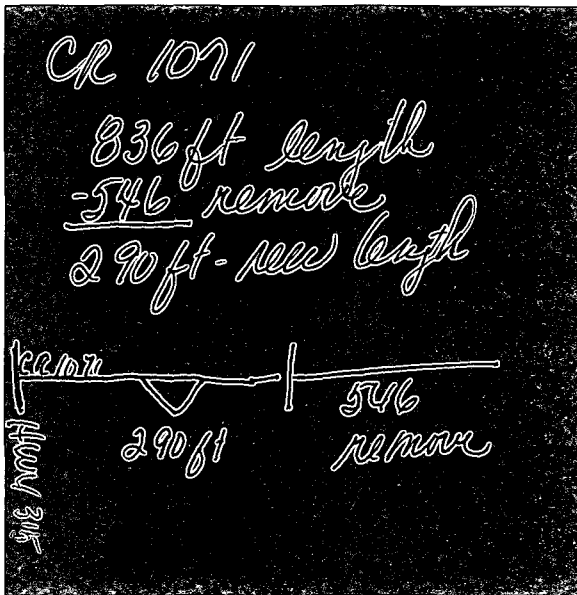 CR 1071
836 ft length
-546 remove
290 ft - new length
CR 1071
290 ft
546
remove
Hwy 315